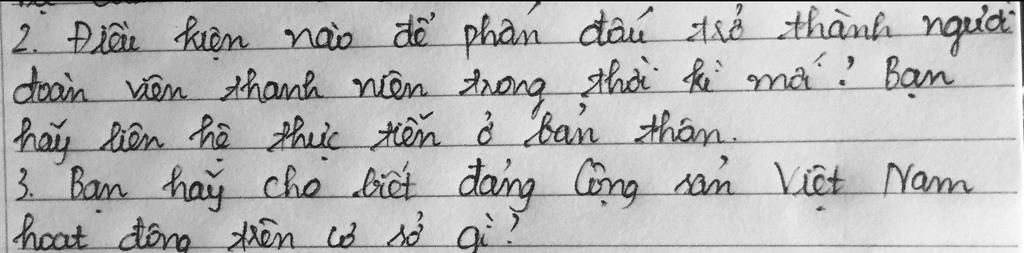 2. Điều kiện nào để phấn đấu trở thành người
đoàn viên thanh niên trong thời kì mới? Bạn
hãy liên hệ thực tiễn ở bản thân.
3. Bạn hãy cho biết đảng Cộng sản Việt Nam
hoạt động trên cơ sở gì?